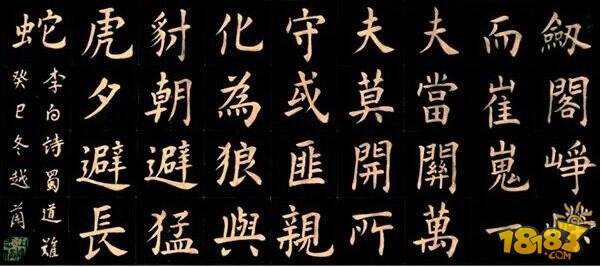 劔閣崢
而崔嵬一
夫當關萬
夫莫開所
守或匪親
化為狼與
豺朝避猛
虎夕避長
蛇
李白詩蜀道難
癸巳冬越
18183.com